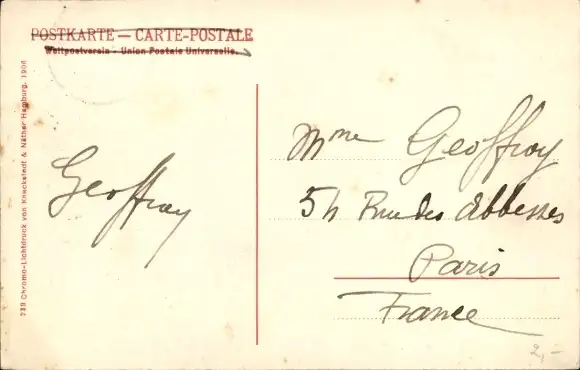 POSTKARTE — CARTE-POSTALE
Weltpostverein - Union Postale Universelle.
739 Chromo-Lichtdruck von Knackstedt & Näther Hamburg. 1906
Geoffray
Mme Geoffroy
54 Rue des Abbesses
Paris
France
2,-